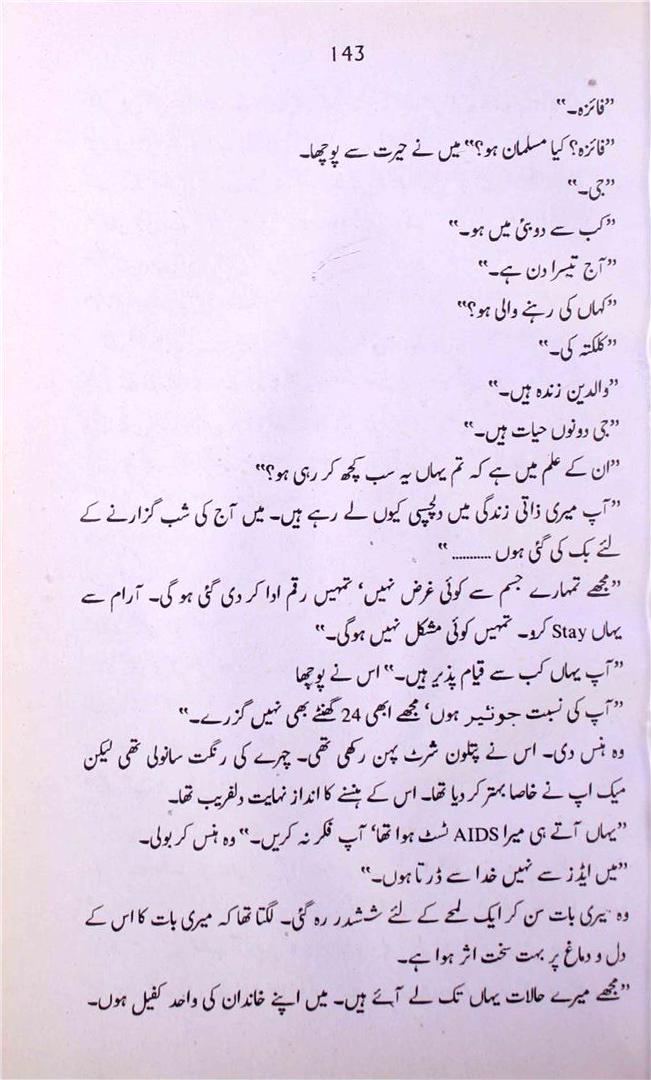 143
”فائزہ۔“
”فائزہ؟ کیا مسلمان ہو؟“ میں نے حیرت سے پوچھا۔
”جی۔“
”کب سے دوبئی میں ہو۔“
”آج تیسرا دن ہے۔“
”کہاں کی رہنے والی ہو؟“
”کلکتہ کی۔“
”والدین زندہ ہیں۔“
”جی دونوں حیات ہیں۔“
”ان کے علم میں ہے کہ تم یہاں یہ سب کچھ کر رہی ہو؟“
”آپ میری ذاتی زندگی میں دلچسپی کیوں لے رہے ہیں۔ میں آج کی شب گزارنے کے
لئے بک کی گئی ہوں ........... “
”مجھے تمہارے جسم سے کوئی غرض نہیں‘ تمہیں رقم ادا کر دی گئی ہو گی۔ آرام سے
یہاں Stay کرو۔ تمہیں کوئی مشکل نہیں ہوگی۔“
”آپ یہاں کب سے قیام پذیر ہیں۔“ اس نے پوچھا
”آپ کی نسبت جونئیر ہوں‘ مجھے ابھی 24 گھنٹے بھی نہیں گزرے۔“
وہ ہنس دی۔ اس نے پتلون شرٹ پہن رکھی تھی۔ چہرے کی رنگت سانولی تھی لیکن
میک اپ نے خاصا بہتر کر دیا تھا۔ اس کے ہنسنے کا انداز نہایت دلفریب تھا۔
”یہاں آتے ہی میرا AIDS ٹسٹ ہوا تھا‘ آپ فکر نہ کریں۔“ وہ ہنس کر بولی۔
”میں ایڈز سے نہیں خدا سے ڈرتا ہوں۔“
وہ میری بات سن کر ایک لمحے کے لئے ششدر رہ گئی۔ لگتا تھا کہ میری بات کا اس کے
دل و دماغ پر بہت سخت اثر ہوا ہے۔
”مجھے میرے حالات یہاں تک لے آئے ہیں۔ میں اپنے خاندان کی واحد کفیل ہوں۔